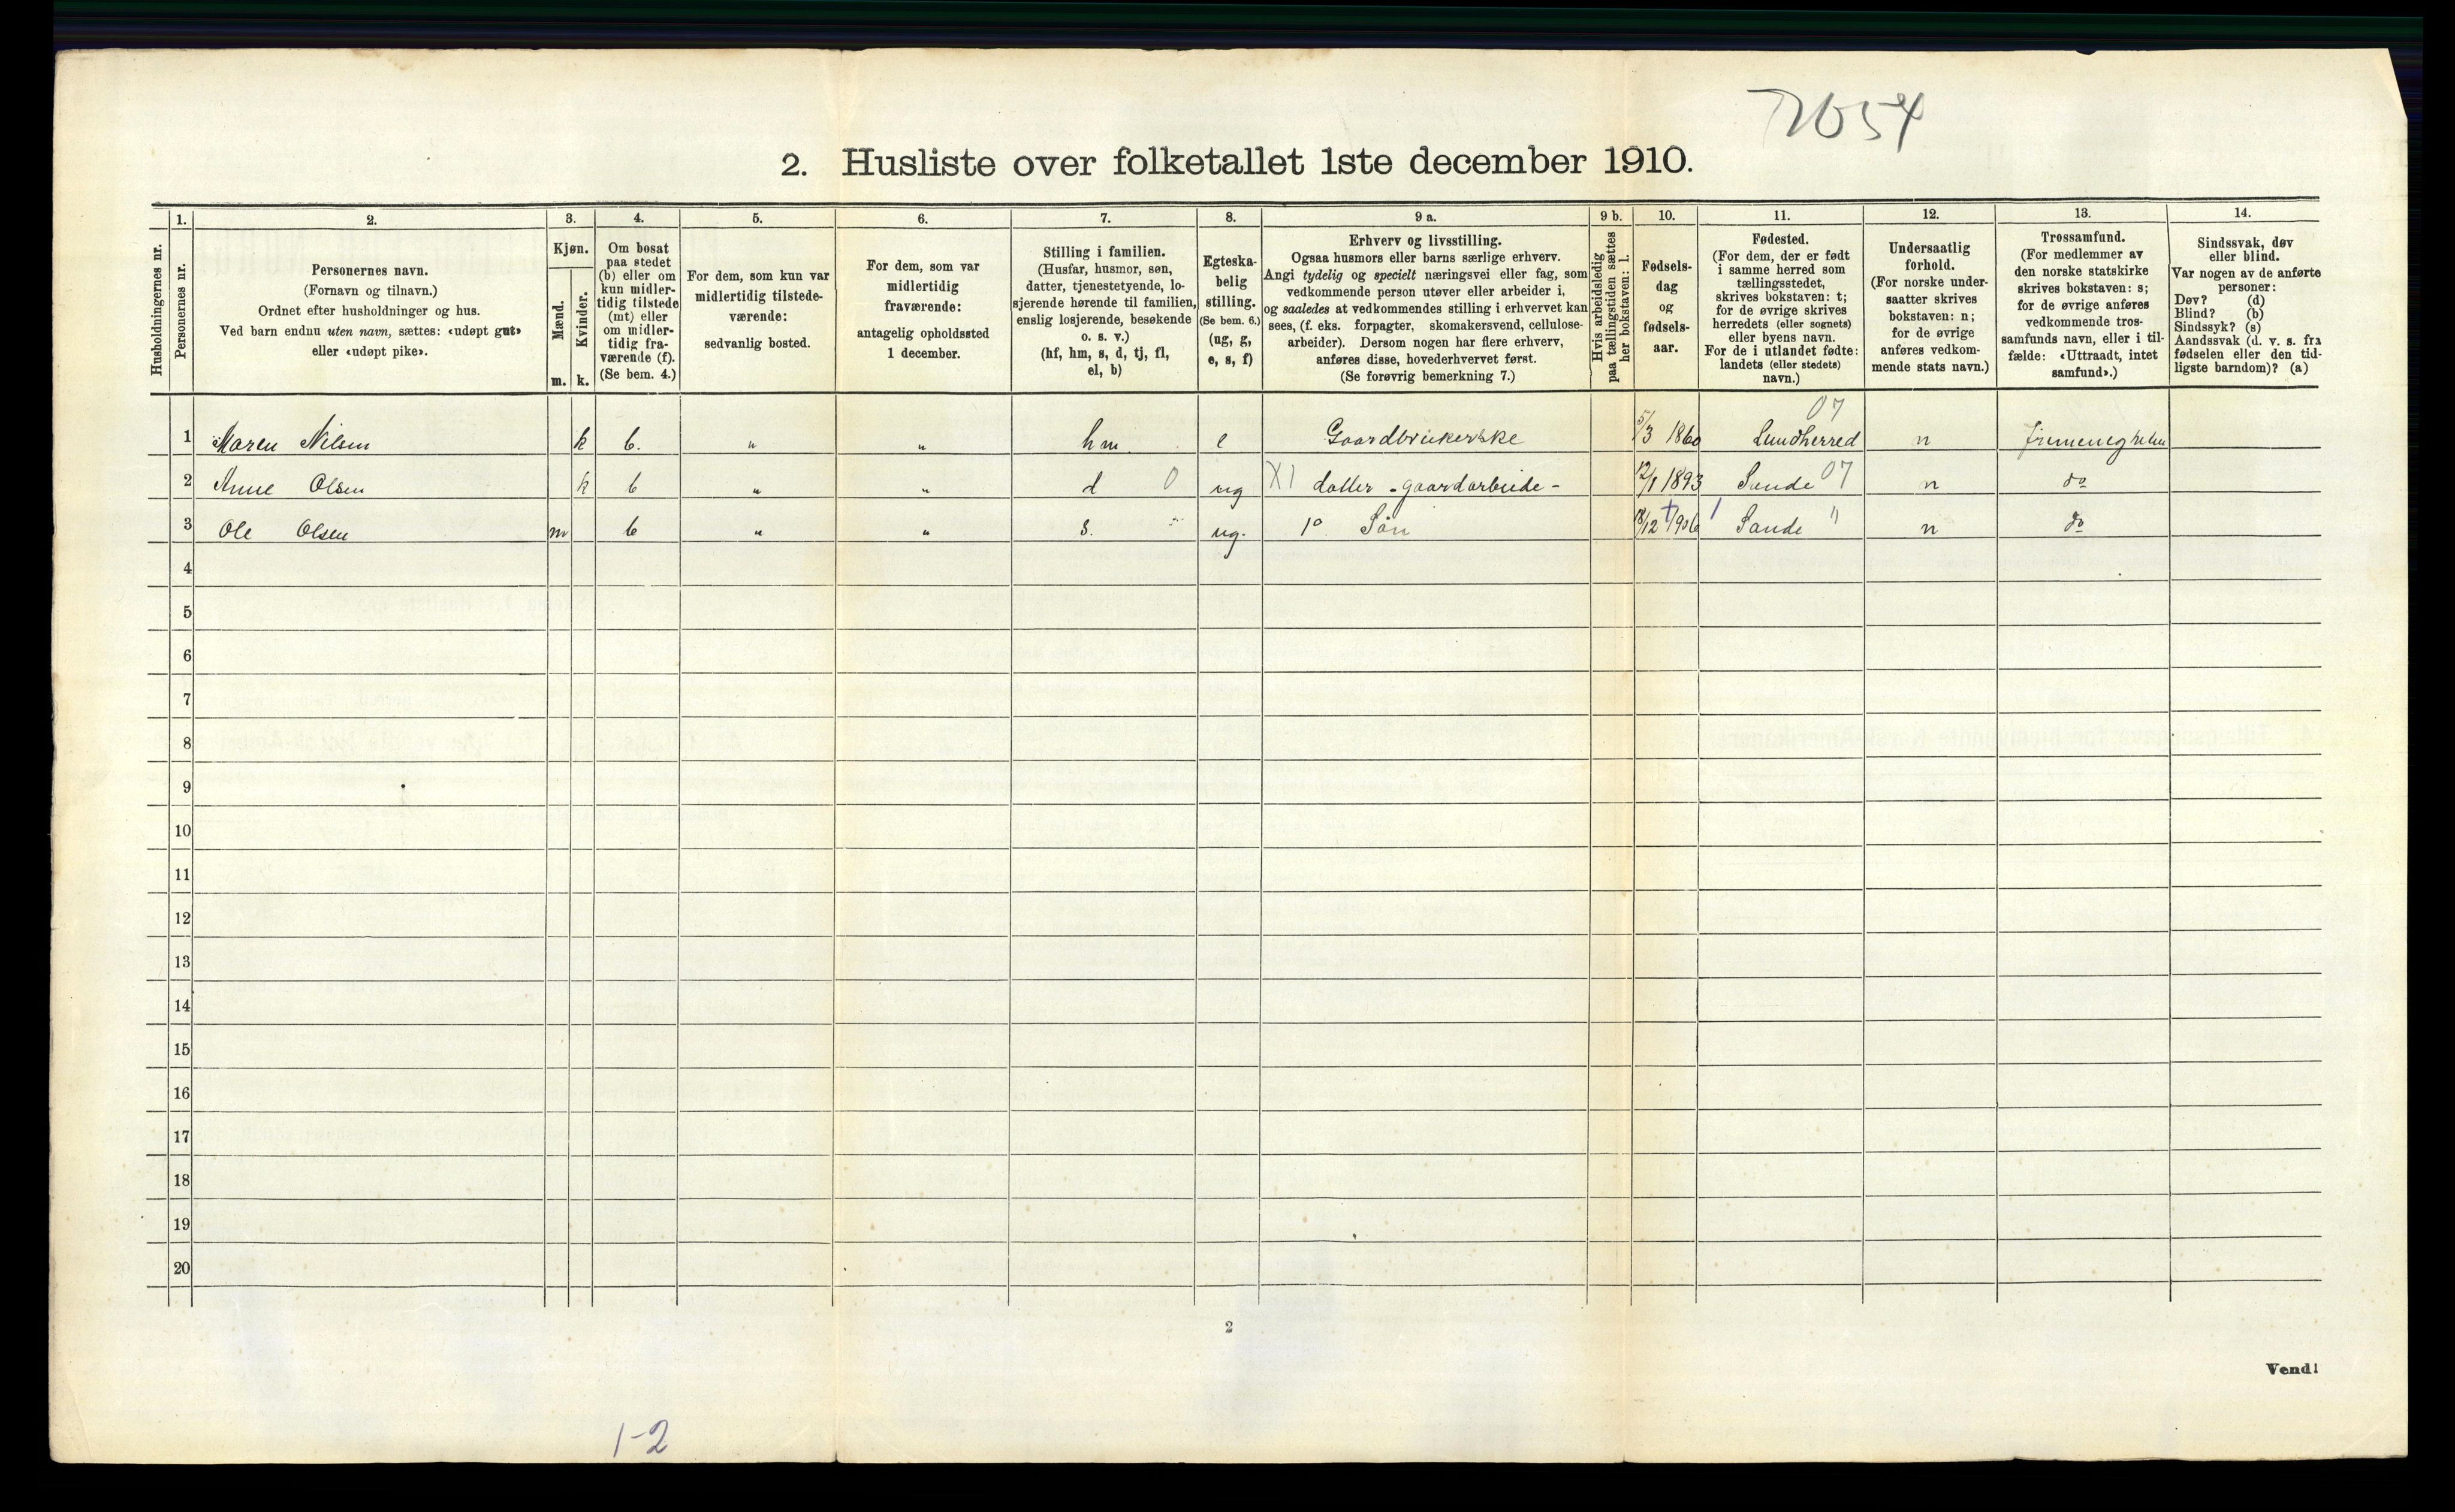 2. Husliste over folketallet 1ste december 1910.
Husholdningernes nr.
1.
Personernes nr.
2.
Personernes navn.
(Fornavn og tilnavn.)
Ordnet efter husholdninger og hus.
Ved barn endnu uten navn, sættes: «udøpt gut»
eller «udøpt pike».
3.
Kjøn.
Mænd.
Kvinder.
m. k.
4.
Om bosat
paa stedet
(b) eller om
kun midler-
tidig tilstede
(mt) eller
om midler-
tidig fra-
værende (f).
(Se bem. 4.)
5.
For dem, som kun var
midlertidig tilstede-
værende:
sedvanlig bosted.
6.
For dem, som var
midlertidig
fraværende:
antagelig opholdssted
1 december.
7.
Stilling i familien.
(Husfar, husmor, søn,
datter, tjenestetyende, lo-
sjerende hørende til familien,
enslig losjerende, besøkende
o. s. v.)
(hf, hm, s, d, tj, fl,
el, b)
8.
Egteska-
belig
stilling.
(Se bem. 6.)
(ug, g,
e, s, f)
9 a.
Erhverv og livsstilling.
Ogsaa husmors eller barns særlige erhverv.
Angi tydelig og specielt næringsvei eller fag, som
vedkommende person utøver eller arbeider i,
og saaledes at vedkommendes stilling i erhvervet kan
sees, (f. eks. forpagter, skomakersvend, cellulose-
arbeider). Dersom nogen har flere erhverv,
anføres disse, hovederhvervet først.
(Se forøvrig bemerkning 7.)
9 b.
Hvis arbeidsledig
paa tællingstiden sættes
her bokstaven: l.
10.
Fødsels-
dag
og
fødsels-
aar.
11.
Fødested.
(For dem, der er født
i samme herred som
tællingsstedet,
skrives bokstaven: t;
for de øvrige skrives
herredets (eller sognets)
eller byens navn.
For de i utlandet fødte:
landets (eller stedets)
navn.)
12.
Undersaatlig
forhold.
(For norske under-
saatter skrives
bokstaven: n;
for de øvrige
anføres vedkom-
mende stats navn.)
13.
Trossamfund.
(For medlemmer av
den norske statskirke
skrives bokstaven: s;
for de øvrige anføres
vedkommende tros-
samfunds navn, eller i til-
fælde: «Uttraadt, intet
samfund».)
14.
Sindssvak, døv
eller blind.
Var nogen av de anførte
personer:
Døv? (d)
Blind? (b)
Sindssyk? (s)
Aandssvak (d. v. s. fra
fødselen eller den tid-
ligste barndom)? (a)
07
1 Maren Nilsen k b. " " hm. e Gaardbrukerske 5/3 1860 Lundherred n
2 Anne Olsen k b " " d 0 ug X1 datter - gaardarbeide - 12/1 1893 Sande 07 n do
3 Ole Olsen m b " " s. ug. 1o Søn 18/12 1906 Sande " n do
4
5
6
7
8
9
10
11
12
13
14
15
16
17
18
19
20
2
Vend!
1-2